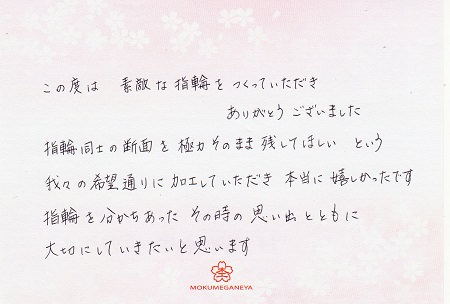 この度は 素敵な指輪を つくっていただき
ありがとう ございました
指輪同士の断面を 極力そのまま 残してほしい という
我々の希望通りに 加工していただき 本当に 嬉しかったです
指輪を分かちあった その時の 思い出とともに
大切にしていきたいと 思います
MOKUMEGANEYA